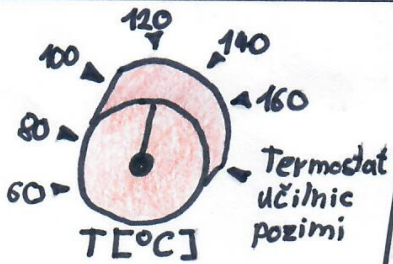 120
100
140
80
160
60
Termostat
učilnic
pozimi
T[°C]